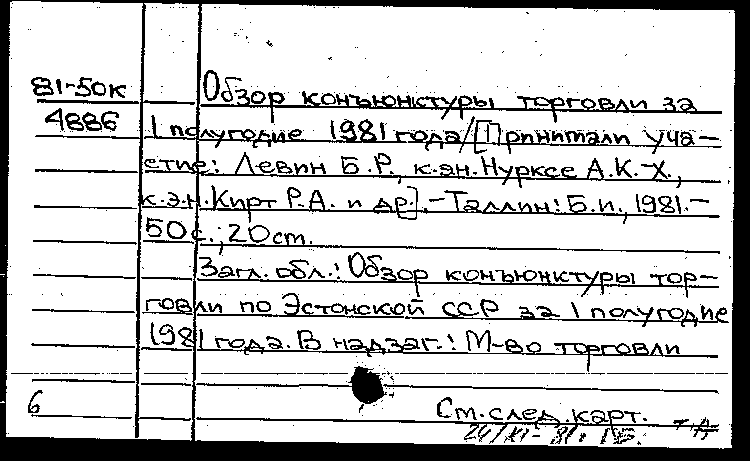 81-50к Обзор конъюнктуры торговли за
4886 I полугодие 1981 года/[Принимали уча-
стие: Левин Б.Р., к.эн. Нурксе А.К.-Х.,
к.э.н. Кирт Р.А. и др.]. - Таллин: Б.и., 1981.-
50 с.; 20 см.
Загл. обл.: Обзор конъюнктуры тор-
говли по Эстонской ССР за I полугодие
1981 года. В надзаг.: М-во торговли
6 См. след. карт.
24/XI-81.